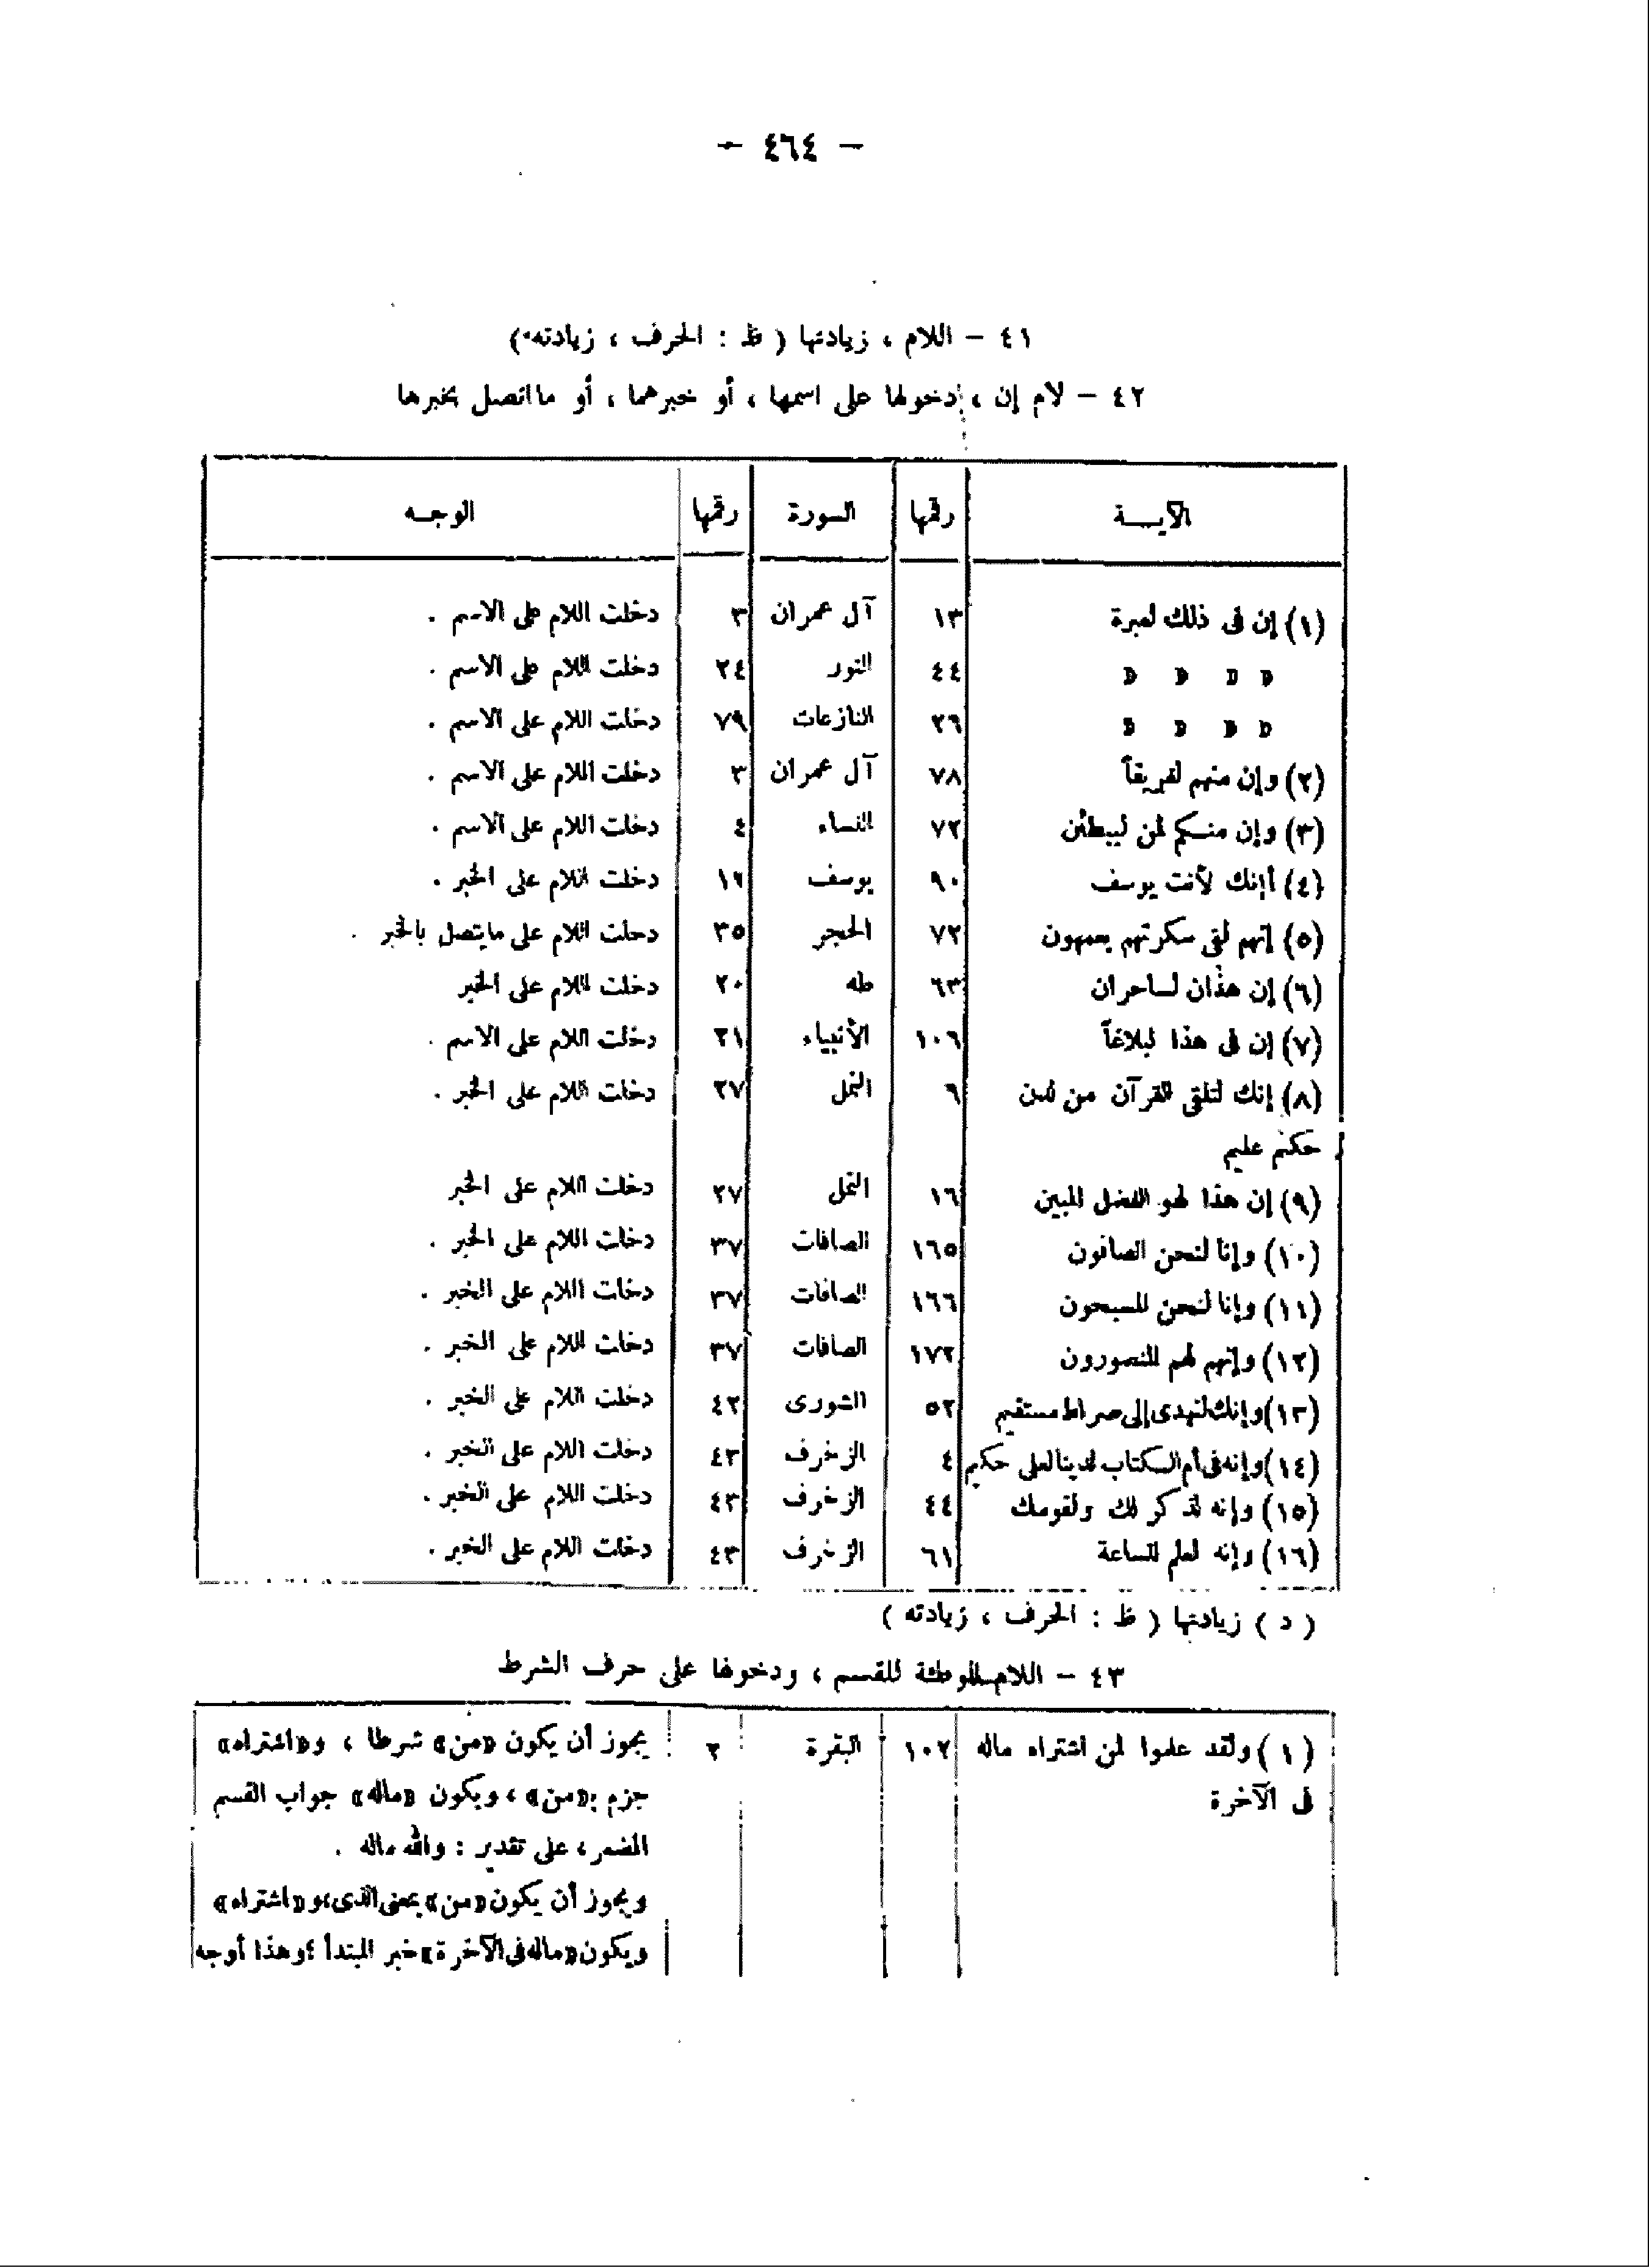 — ٤٦٤ —
٤١ — اللام ، زيادتها ( ظ : الحرف ، زيادته )
٤٢ — لام إن ، دخولها على اسمها ، أو خبرهما ، أو ما اتصل بخبرها
الآيــــة رقمها السورة رقمها الوجــه
(١) إن فى ذلك لعبرة ١٣ آل عمران ٣ دخلت اللام على الاسم .
» » » » ٤٤ النور ٢٤ دخلت اللام على الاسم .
» » » » ٢٦ النازعات ٧٩ دخلت اللام على الاسم .
(٢) وإن منهم لفريقاً ٧٨ آل عمران ٣ دخلت اللام على الاسم .
(٣) وإن منكم لمن ليبطئن ٧٢ النساء ٤ دخلت اللام على الاسم .
(٤) أإنك لأنت يوسف ٩٠ يوسف ١٢ دخلت اللام على الخبر .
(٥) إنهم لفى سكرتهم يعمهون ٧٢ الحجر ٣٥ دخلت اللام على ما يتصل بالخبر .
(٦) إن هذان لساحران ٦٣ طه ٢٠ دخلت اللام على الخبر
(٧) إن فى هذا لبلاغاً ١٠٦ الأنبياء ٢١ دخلت اللام على الاسم .
(٨) إنك لتلقى القرآن من لدن ٦ النمل ٢٧ دخلت اللام على الخبر .
حكيم عليم
(٩) إن هذا لهو الفضل المبين ١٦ النمل ٢٧ دخلت اللام على الخبر
(١٠) وإنا لنحن الصافون ١٦٥ الصافات ٣٧ دخلت اللام على الخبر .
(١١) وإنا لنحن المسبحون ١٦٦ الصافات ٣٧ دخلت اللام على الخبر .
(١٢) وإنهم لهم المنصورون ١٧٢ الصافات ٣٧ دخلت اللام على الخبر .
(١٣) وإنك لتهدى إلى صراط مستقيم ٥٢ الشورى ٤٢ دخلت اللام على الخبر .
(١٤) وإنه فى أم الكتاب لدينا لعلى حكيم ٤ الزخرف ٤٣ دخلت اللام على الخبر .
(١٥) وإنه لذكر لك ولقومك ٤٤ الزخرف ٤٣ دخلت اللام على الخبر .
(١٦) وإنه لعلم للساعة ٦١ الزخرف ٤٣ دخلت اللام على الخبر .
( د ) زيادتها ( ظ : الحرف ، زيادته )
٤٣ — اللام الموطئة للقسم ، ودخولها على حرف الشرط
( ١ ) ولقد علموا لمن اشتراه ماله ١٠٢ البقرة ٢ يجوز أن يكون «من» شرطا ، و«اشتراه»
فى الآخرة جزم بـ«من» ، ويكون «ماله» جواب القسم
المضمر ، على تقدير : والله ماله .
ويجوز أن يكون «من» بمعنى الذى ، و«اشتراه»
ويكون «ماله فى الآخرة» خبر المبتدأ ؛ وهذا أوجه